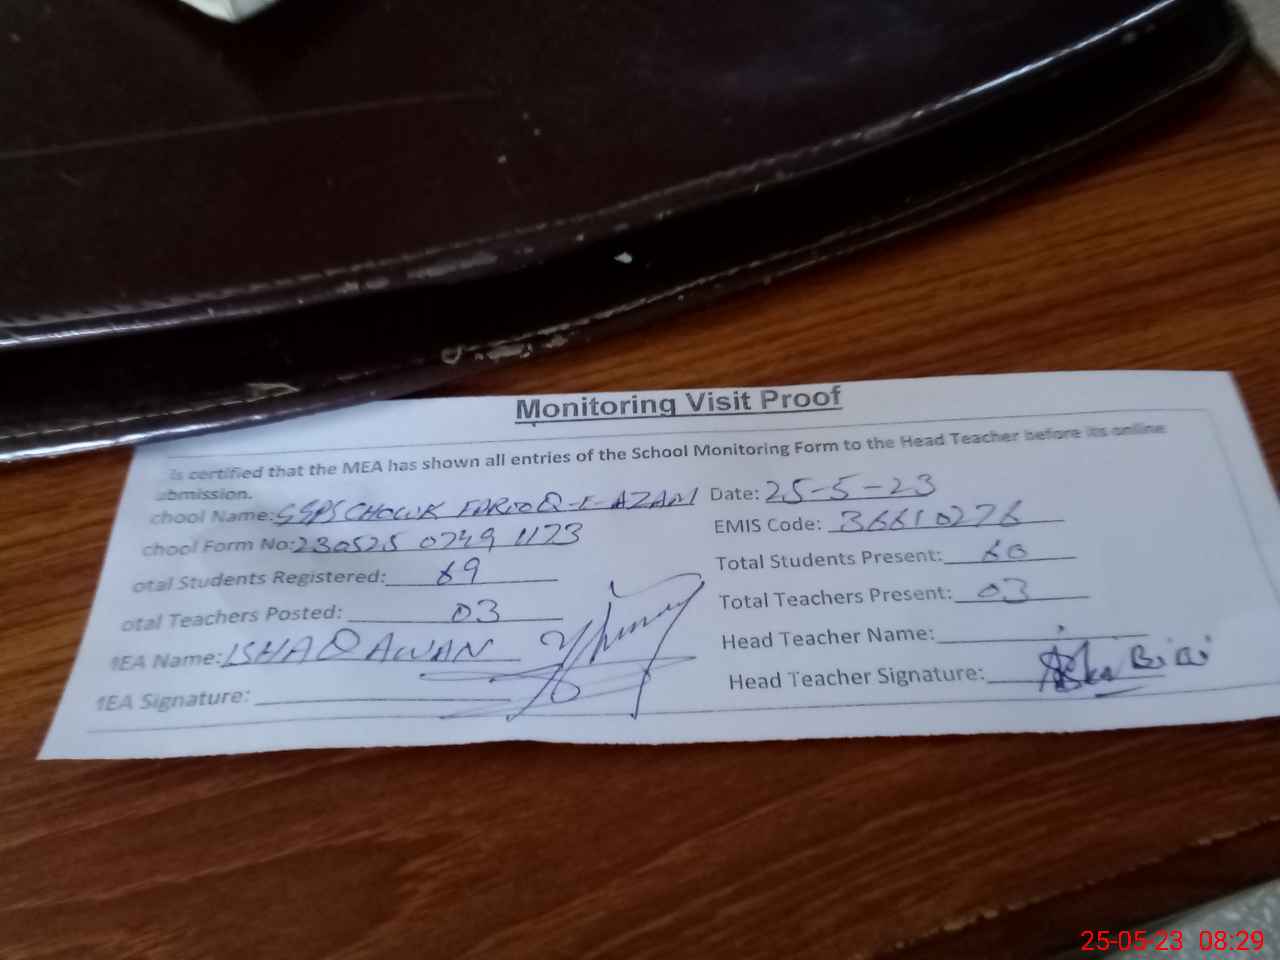 Monitoring Visit Proof
is certified that the MEA has shown all entries of the School Monitoring Form to the Head Teacher before its online
ubmission.
chool Name: GGPS CHOWK FAROOQ-E-AZAM Date: 25-5-23
chool Form No: 230525 0749 1173 EMIS Code: 36610276
otal Students Registered: 69 Total Students Present: 60
otal Teachers Posted: 03 Total Teachers Present: 03
MEA Name: ISHAQ AWAN Head Teacher Name:
MEA Signature: Head Teacher Signature: Bibi
25-05-23 08:29